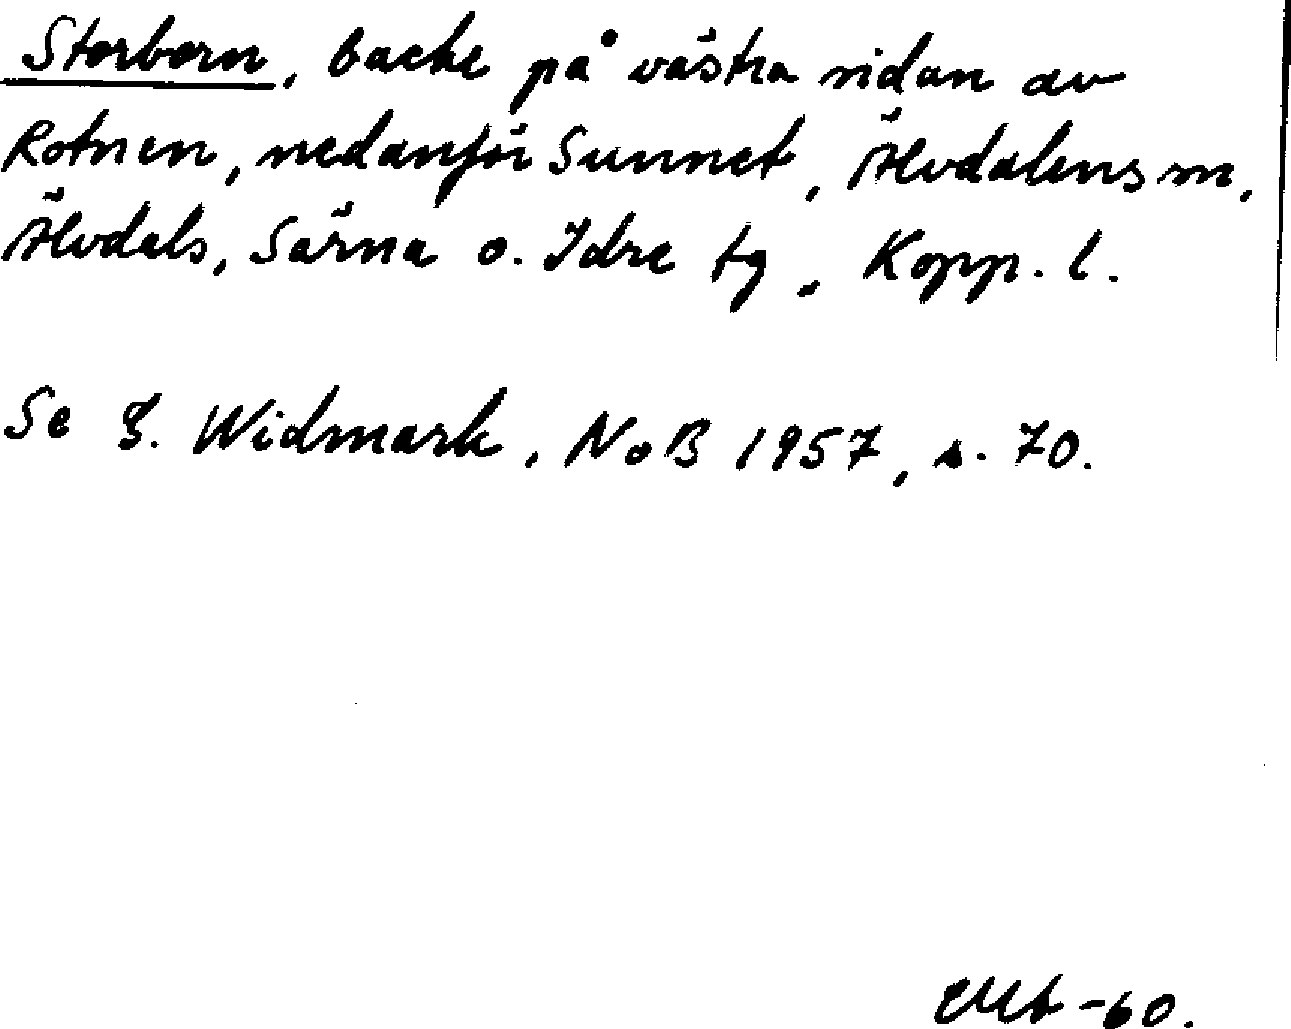 Storborn, backe på västra sidan av
Rotnen, nedanför Sunnet, Älvdalens sn,
Älvdals, Särna o. Idre tg, Kopp. l.
Se G. Widmark, NoB 1957, s. 70.
-60.